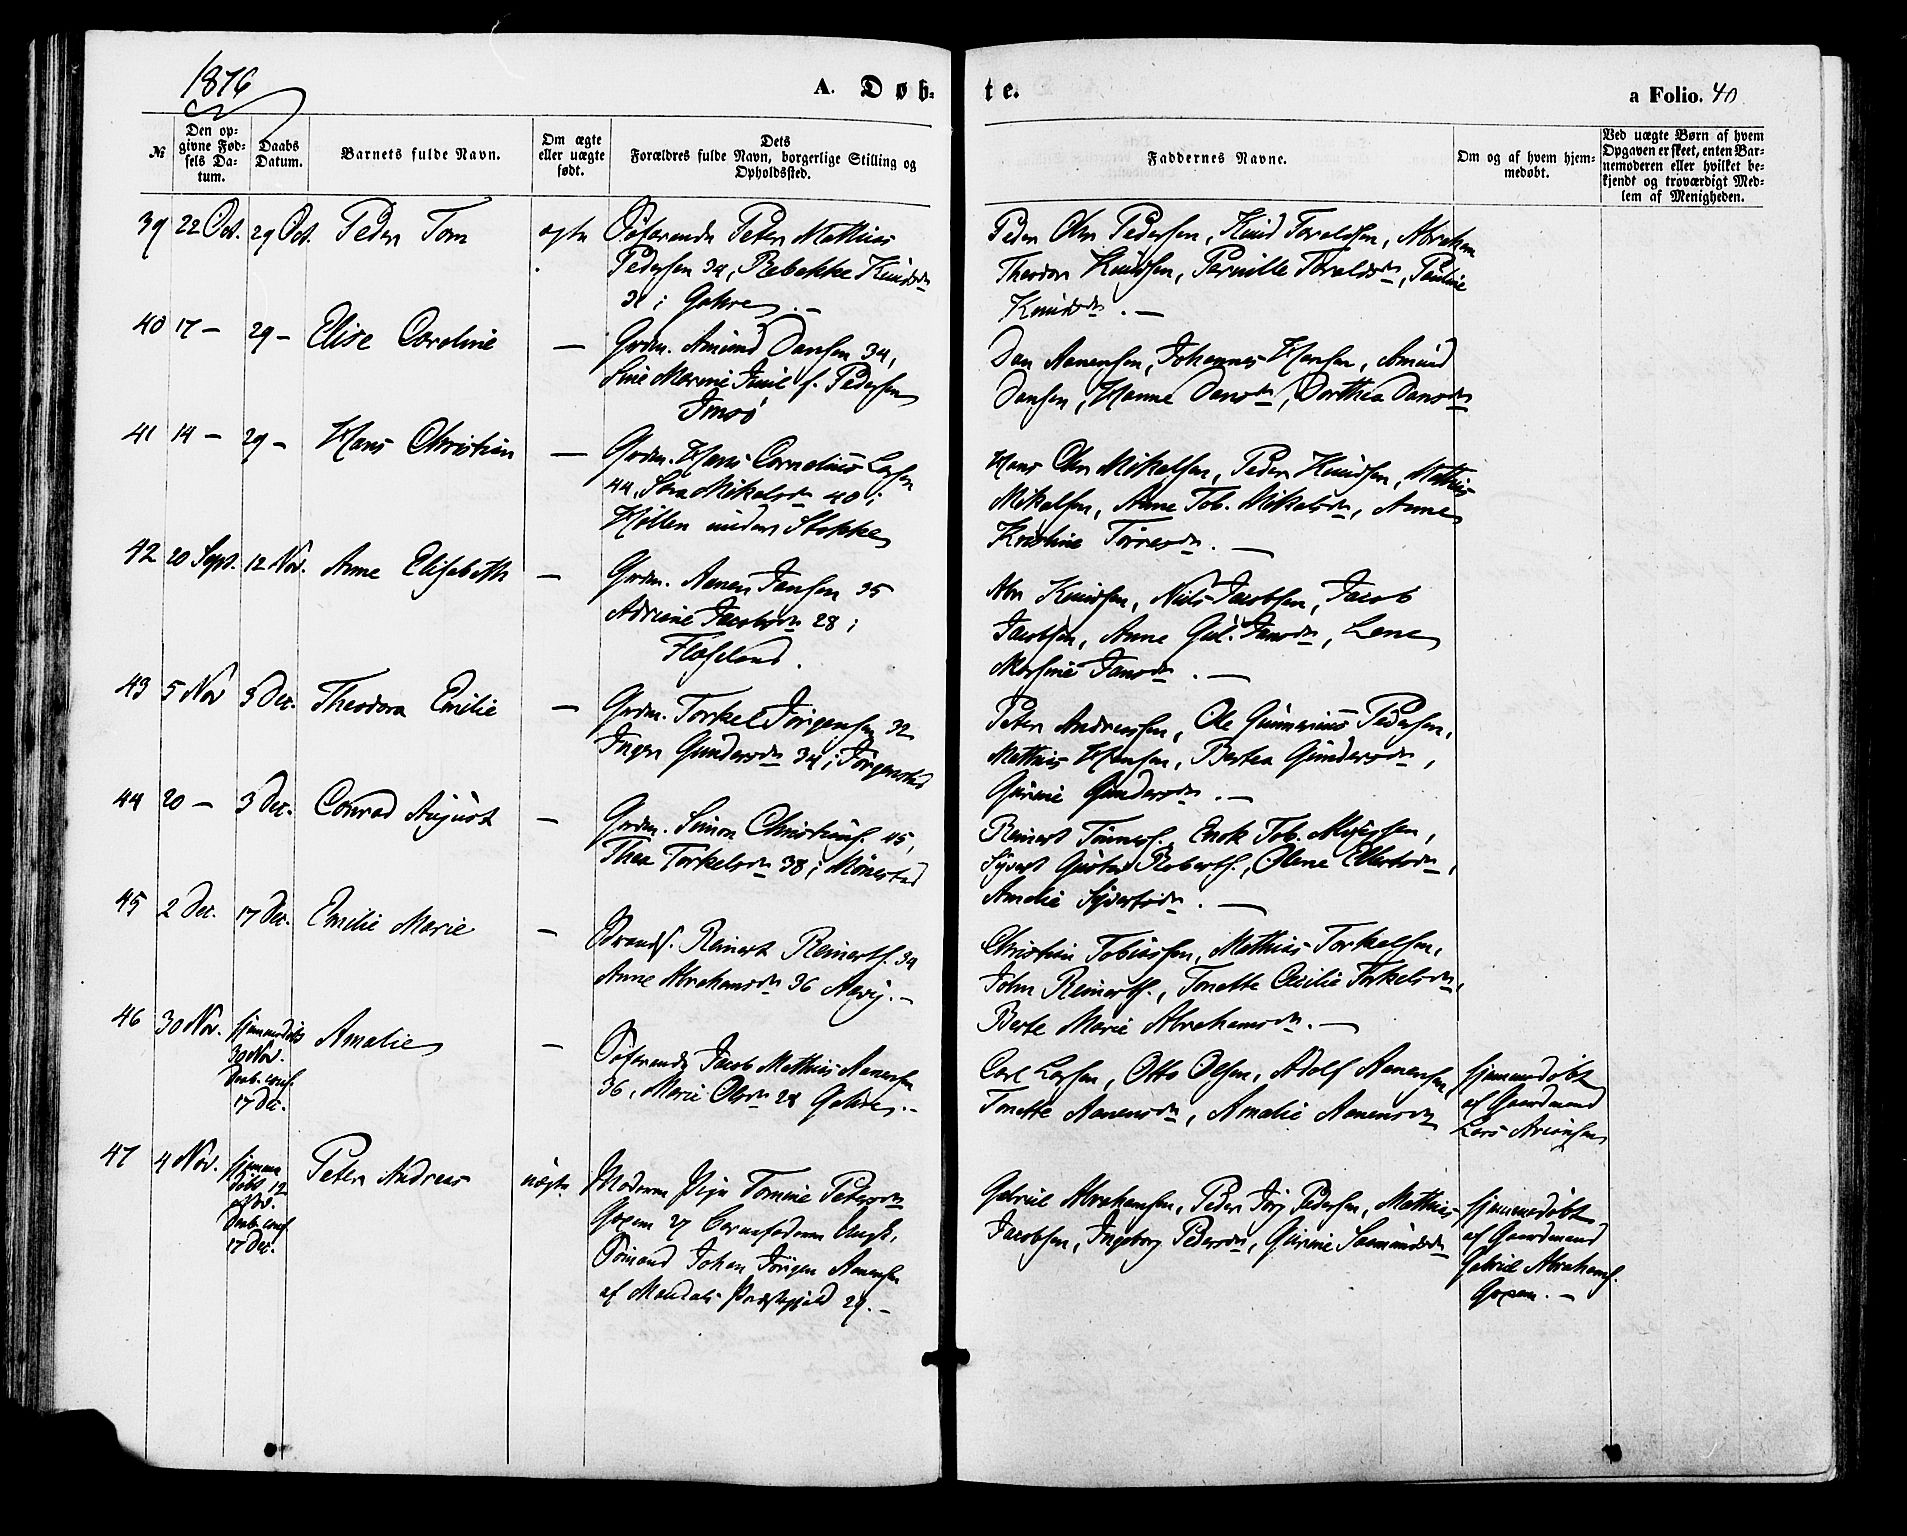 1876
A. Døb-
te.
a Folio. 40
№
Den op-
givne Fød-
sels Da-
tum.
Daabs
Datum.
Barnets fulde Navn.
Om ægte
eller uægte
født.
Dets
Forældres fulde Navn, borgerlige Stilling og
Opholdssted.
Faddernes Navne.
Om og af hvem hjem-
medøbt.
Ved uægte Børn af hvem
Opgaven er skeet, enten Bar-
nemoderen eller hvilket be-
kjendt og troværdigt Med-
lem af Menigheden.
39 22 Oct. 29 Oct. Peder Tom ægte Søfarende Peter Mathias
Pedersen 34, Rebekke Knudsdr
31 i Gahre. —
Peder Chr Pedersen, Knud Toraldsen, Abraham
Theodor Knudsen, Pernille Toraldsdr, Pauline
Knudsdr. —
40 17 — 29 — Elise Caroline — Grdm. Amund Dansen 34,
Sine Marie Juul f. Pedersen
Imsø
Dan Aanensen, Johannes Hansen, Amund
Dansen, Hanne Dansdr, Dorthea Dansdr
41 14 — 29 — Hans Christian — Grdm. Hans Cornelius Larsen
44, Sara Mikelsdr 40 i
under Stokke
Hans Chr Mikelsen, Peder Knudsen, Mathias
Mikelsen, Anne Tob. Mikelsdr, Anne
Kristine Torresdr. —
42 20 Sept. 12 Nov. Anne Elisabeth — Grdm. Aanen Jansen 35
Adriane Jacobsdr 28 i
Flaseland.
Abr Knudsen, Niels Jacobsen, Jacob
Jacobsen, Anne Gul. Jansdr, Lene
Marsine Jansdr. —
43 5 Nov 3 Dec. Theodora Emilie — Grdm. Torkel Jörgensen 32
Inger Gundersdr 34 i Jörgenstad
Peter Andreassen, Ole Gunnarius Pedersen,
Mathias Hansen, Bertea Gundersdr,
Gurine Gundersdr. —
44 20 — 3 Dec. Conrad August — Grdm. Simon Christians. 45,
Thea Torkelsdr 38 i Mönestad
Reinert Tönness., Enok Tob.
Syvert Gustav Roberts., Olene Ellertsdr,
Amalie Syvertsdr. —
45 2 Dec. 17 Dec. Emilie Marie — Strands. Reinert Reinerts. 34
Anne Abrahamsdr 36 Aavig. —
Christian Tobiassen, Mathias Torkelsen,
John Reinerts., Tonette Cecilie Torkelsdr,
Berte Marie Abrahamsdr. —
46 30 Nov. hjemmedöbt
30 Nov.
Daab. conf.
17 Dec.
Amalie — Søfarende Jacob Mathias Aanensen
36, Marie Olsdr 28 Gahre. —
Carl Larsen, Otto Olsen, Adolf Aanensen
Tonette Aanensdr, Amalie Aanensdr
hjemmedöbt
af Gaardmand
Lars
47 4 Nov. hjemme
döbt 12
Nov.
Daab. conf.
17 Dec.
Peter Andreas uægte Moderen Pige Tomine Petersdr
Goxem 27 Barnefaderen Ungk.
Sömand Johan Jörgen Aanensen
af Mandals Præstegjeld 29. —
Gabriel Abrahamsen, Peder Jörg Pedersen, Mathias
Jacobsen, Ingeborg Pedersdr, Gurine Saamundsdr
hjemmedöbt
af Gaardmand
Gabriel Abrahams.
Goxem. —